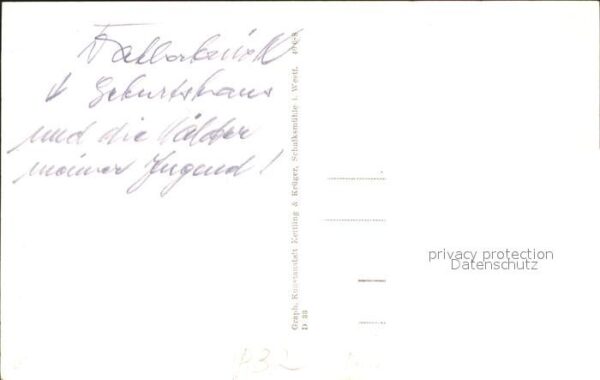 ↓ Geburtshaus
und die Wälder
meiner Jugend!
Graph. Kunstanstalt Kettling & Krüger, Schalksmühle i. Westf.
D 88
privacy protection
Datenschutz